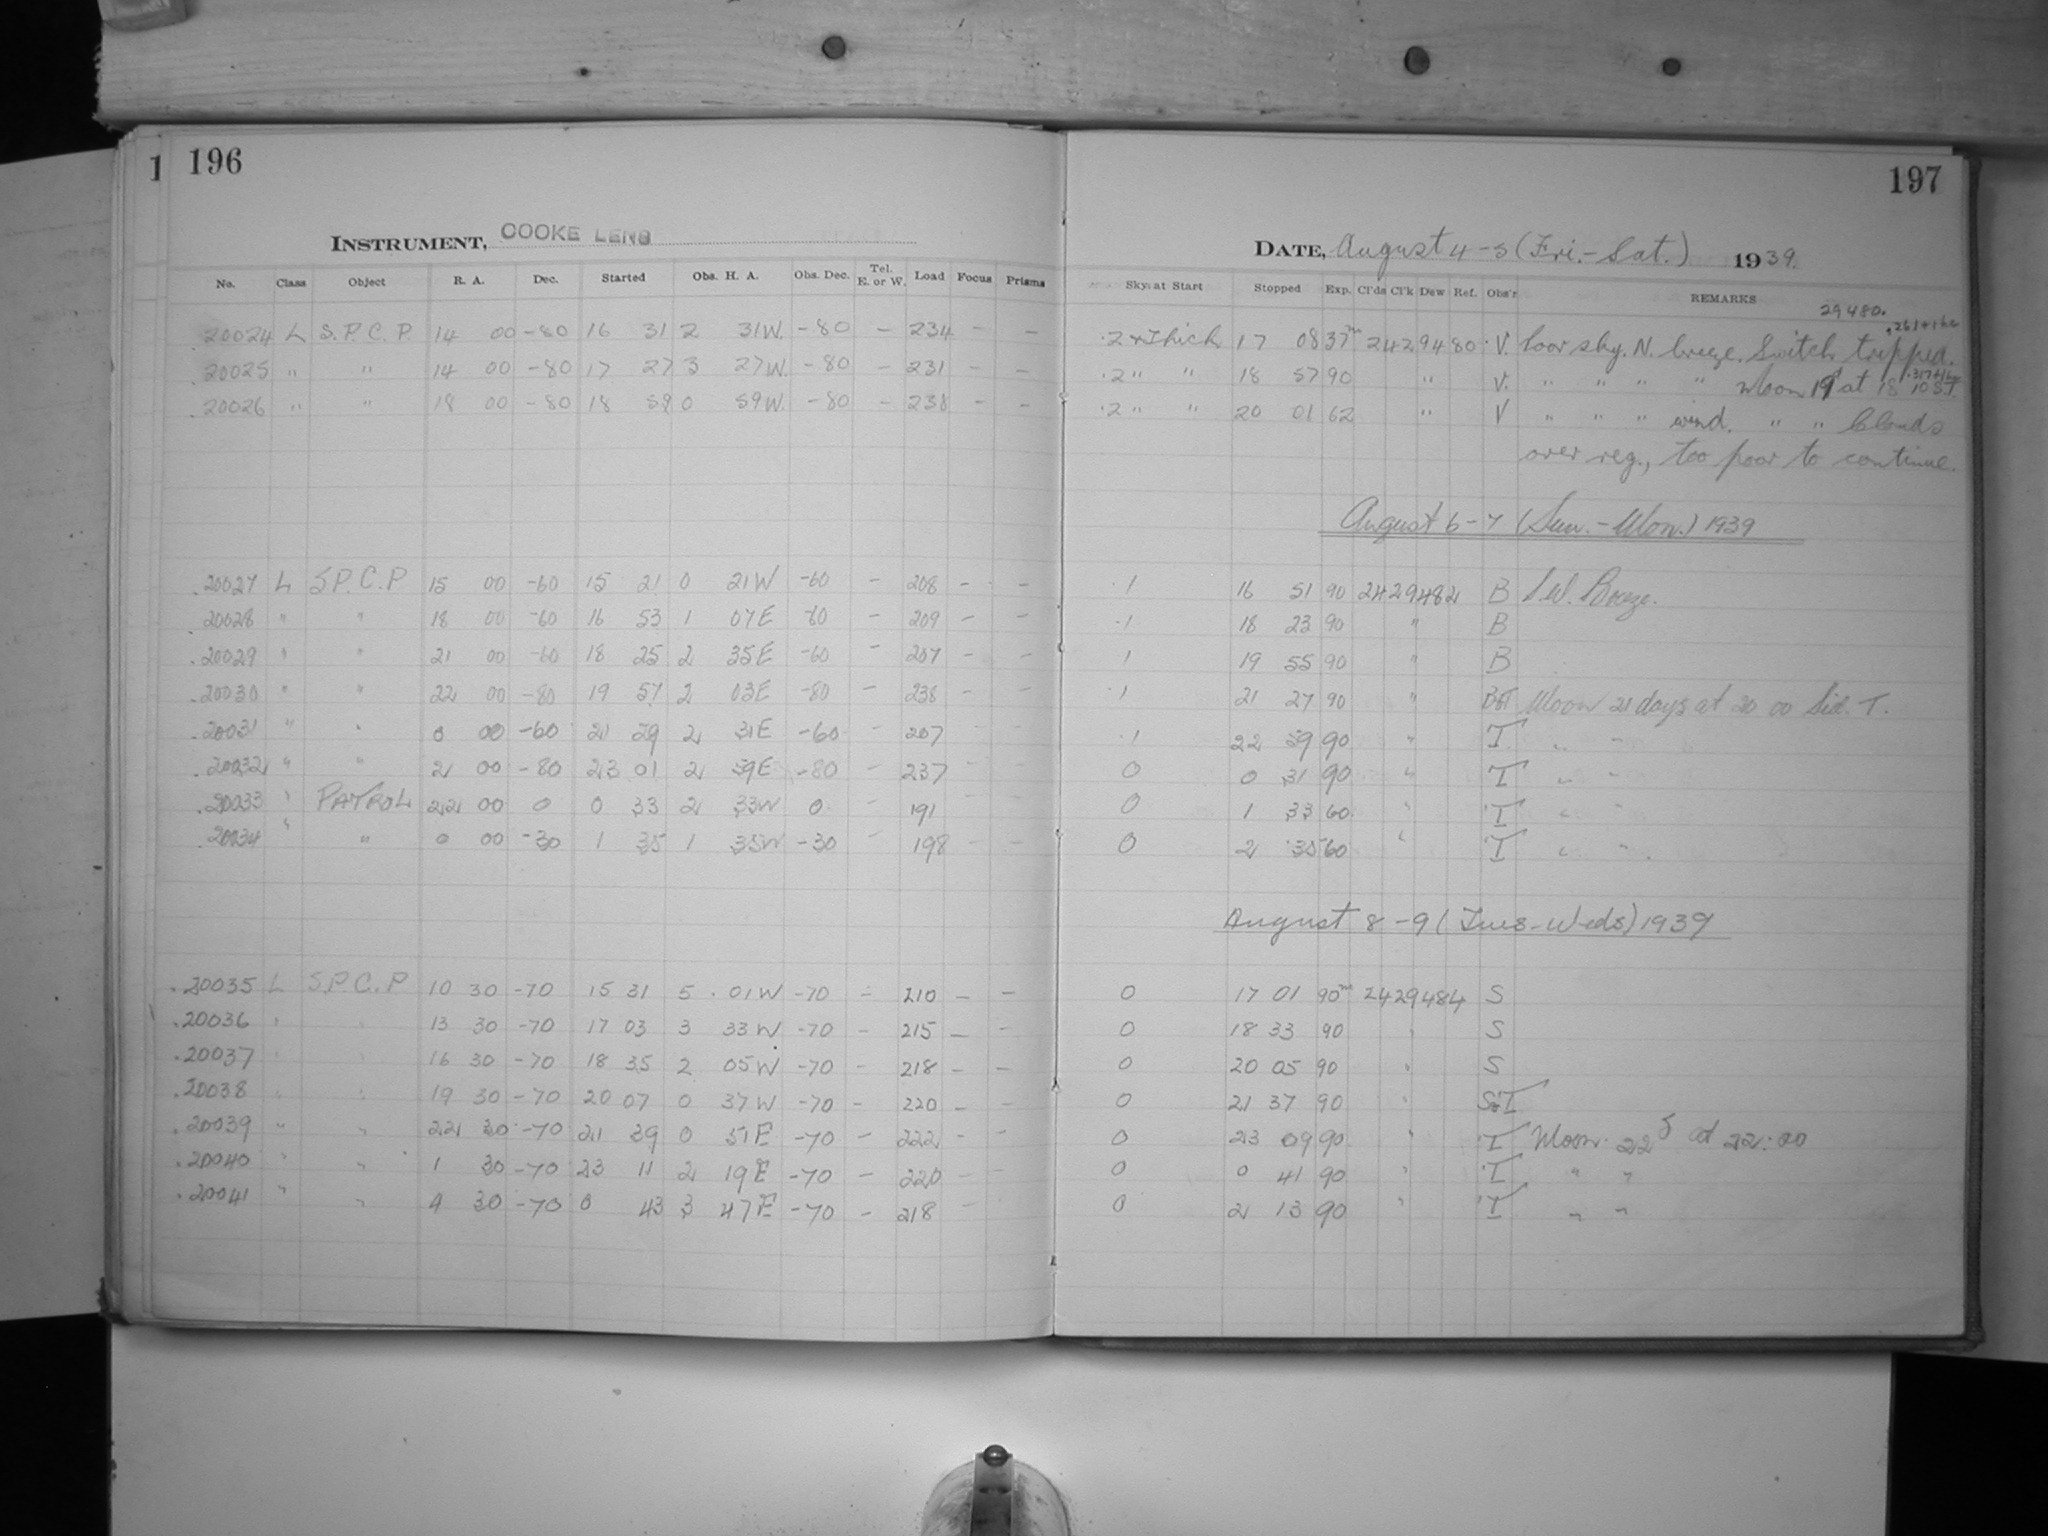 1 196
INSTRUMENT, COOKE LENS
No. Class Object R. A. Dec. Started Obs. H. A. Obs. Dec. Tel. E. or W. Load Focus Prisms
20024 L S.P.C.P. 14 00 -80 16 31 2 31W. -80 - 234 - -
20025 " " 14 00 -80 17 27 3 27W. -80 - 231 - -
20026 " " 18 00 -80 18 59 0 59W. -80 - 238 - -
20027 L S.P.C.P 15 00 -60 15 21 0 21W -60 - 208 - -
20028 " " 18 00 -60 16 53 1 07E -60 - 209 - -
20029 " " 21 00 -60 18 25 2 35E -60 - 207 - -
20030 " " 22 00 -80 19 57 2 03E -80 - 238 - -
20031 " " 0 00 -60 21 29 2 31E -60 - 207 - -
20032 " " 2 00 -80 23 01 2 59E -80 - 237 - -
20033 " PATROL 22 00 0 0 33 2 33W 0 - 191 - -
20034 " " 0 00 -30 1 35 1 35W -30 - 198 - -
.20035 L S.P.C.P 10 30 -70 15 31 5 01W -70 - 210 - -
.20036 " " 13 30 -70 17 03 3 33W -70 - 215 - -
.20037 " " 16 30 -70 18 35 2 05W -70 - 218 - -
.20038 " " 19 30 -70 20 07 0 37W -70 - 220 - -
.20039 " " 22 30 -70 21 39 0 51E -70 - 222 - -
.20040 " " 1 30 -70 23 11 2 19E -70 - 220 -
.20041 " " 4 30 -70 0 43 3 47E -70 - 218 -
197
DATE, August 4-5 (Fri.-Sat.) 1939.
Sky at Start Stopped Exp. Cl'ds Cl'k Dew Ref. Obs'r REMARKS
29480.
.2 + Thick 17 08 37m 2429480 V. Poor sky. N. breeze. Switch tripped.
.2 " " 18 57 90 " V. " " " " Moon 19d at 18 10 S.T.
.2 " " 20 01 62 " V " " " wind. " " Clouds
over reg., too poor to continue.
August 6-7 (Sun.-Mon.) 1939
.1 16 51 90 2429482 B S.W. Breeze.
.1 18 23 90 " B
.1 19 55 90 " B
.1 21 27 90 " B&T Moon 21 days at 20 00 Sid. T.
.1 22 59 90 " T " "
0 0 31 90 " T " "
0 1 33 60 " T " "
0 2 35 60 " T " "
August 8-9 (Tues-Weds) 1939
0 17 01 90m 2429484 S
0 18 33 90 " S
0 20 05 90 " S
0 21 37 90 " S&T
0 23 09 90 " T Moon 22d at 22:00
0 0 41 90 " T " "
0 2 13 90 " T " "